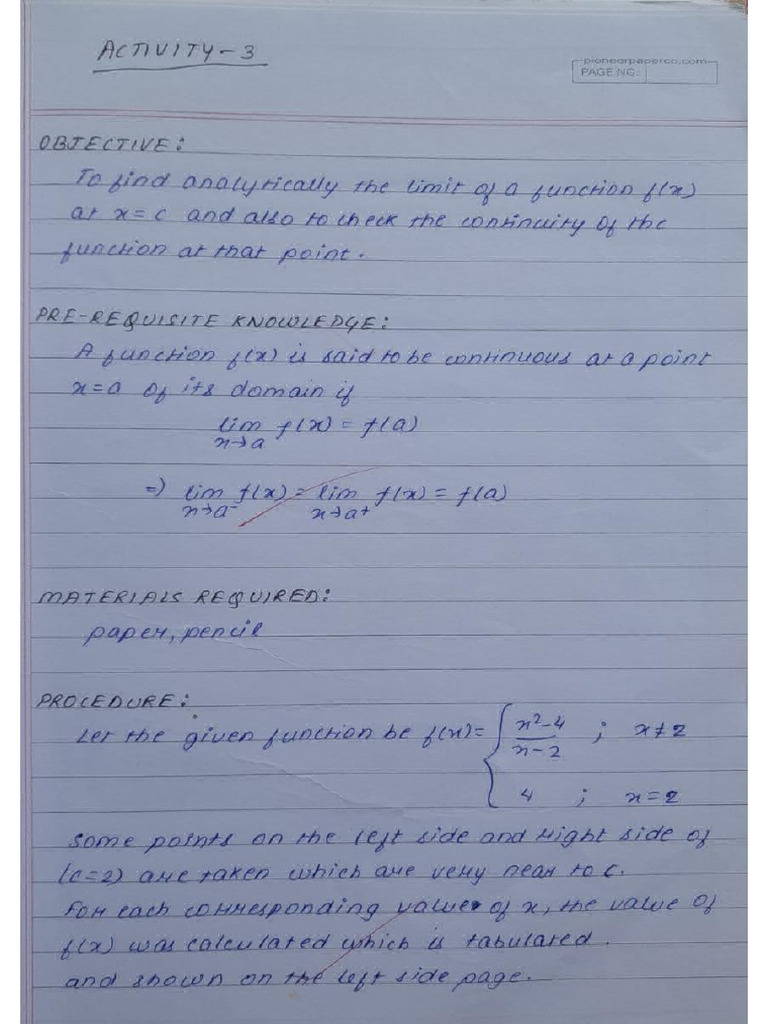 ACTIVITY-3
pioneerpaperco.com
PAGE NO.
OBJECTIVE:
To find analytically the limit of a function f(x)
at x=c and also to check the continuity of the
function at that point.
PRE-REQUISITE KNOWLEDGE:
A function f(x) is said to be continuous at a point
x=a of its domain if
lim f(x) = f(a)
x→a
=) lim f(x) = lim f(x) = f(a)
x→a⁻ x→a⁺
MATERIALS REQUIRED:
paper, pencil
PROCEDURE:
Let the given function be f(x)= { x²-4 ; x≠2
x-2
4 ; x=2
some points on the left side and right side of
(c=2) are taken which are very near to c.
For each corresponding value of x, the value of
f(x) was calculated which is tabulated.
and shown on the left side page.